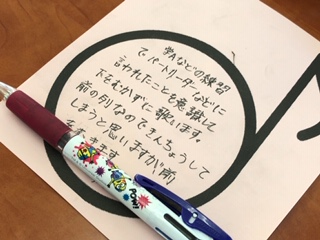 学Aなどの練習
で、パートリーダーなどに
言われたことを意識して
下をむかずに歌います。
前の列なのできんちょうして
しまうと思いますが前
きます
POW!